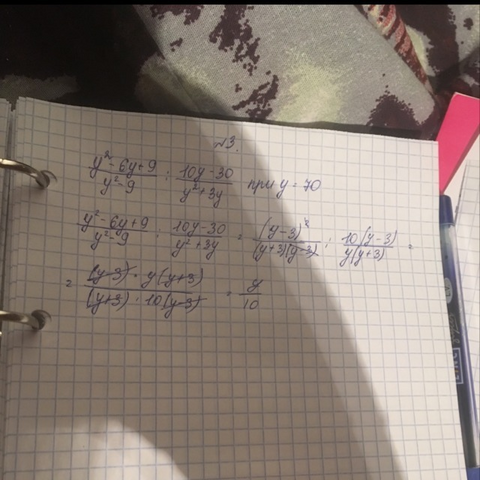 №3.
y²-6y+9/y²-9 : 10y-30/y²+3y при y=70
y²-6y+9/y²-9 : 10y-30/y²+3y = (y-3)²/(y+3)(y-3) : 10(y-3)/y(y+3) =
= (y-3)·y(y+3)/(y+3)·10(y-3) = y/10